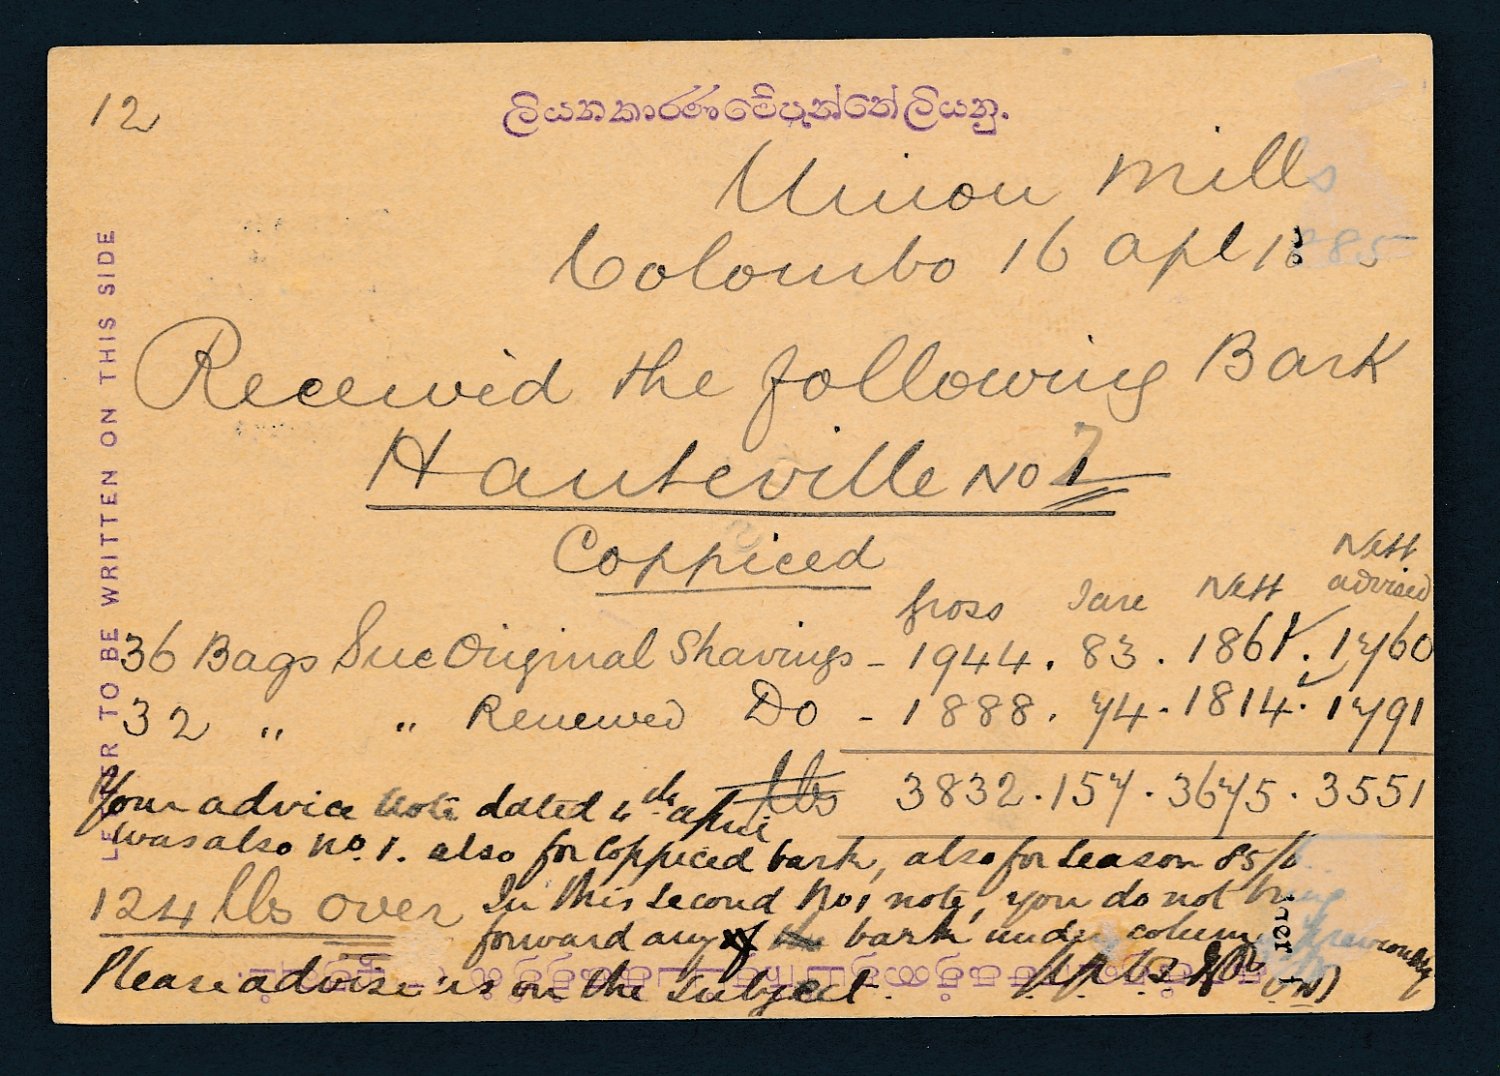 12
ලියනකාරණමේපැත්තේලියනු.
LETTER TO BE WRITTEN ON THIS SIDE
Union Mills
Colombo 16 Apl 1885
Received the following Bark
Hauteville No 1
Coppiced
Gross Tare Nett Nett advised
36 Bags Suc Original Shavings - 1944 . 83 . 1861 . 1760
32 " " Renewed Do - 1888 . 74 . 1814 . 1791
lbs 3832 . 157 . 3675 . 3551
Your advice note dated 4th April
was also No. 1. also for Coppiced bark, also for Season 85/
124 lbs over
In this second No 1 note, you do not bring
forward any of the bark under column previously
Please advise us on the subject.